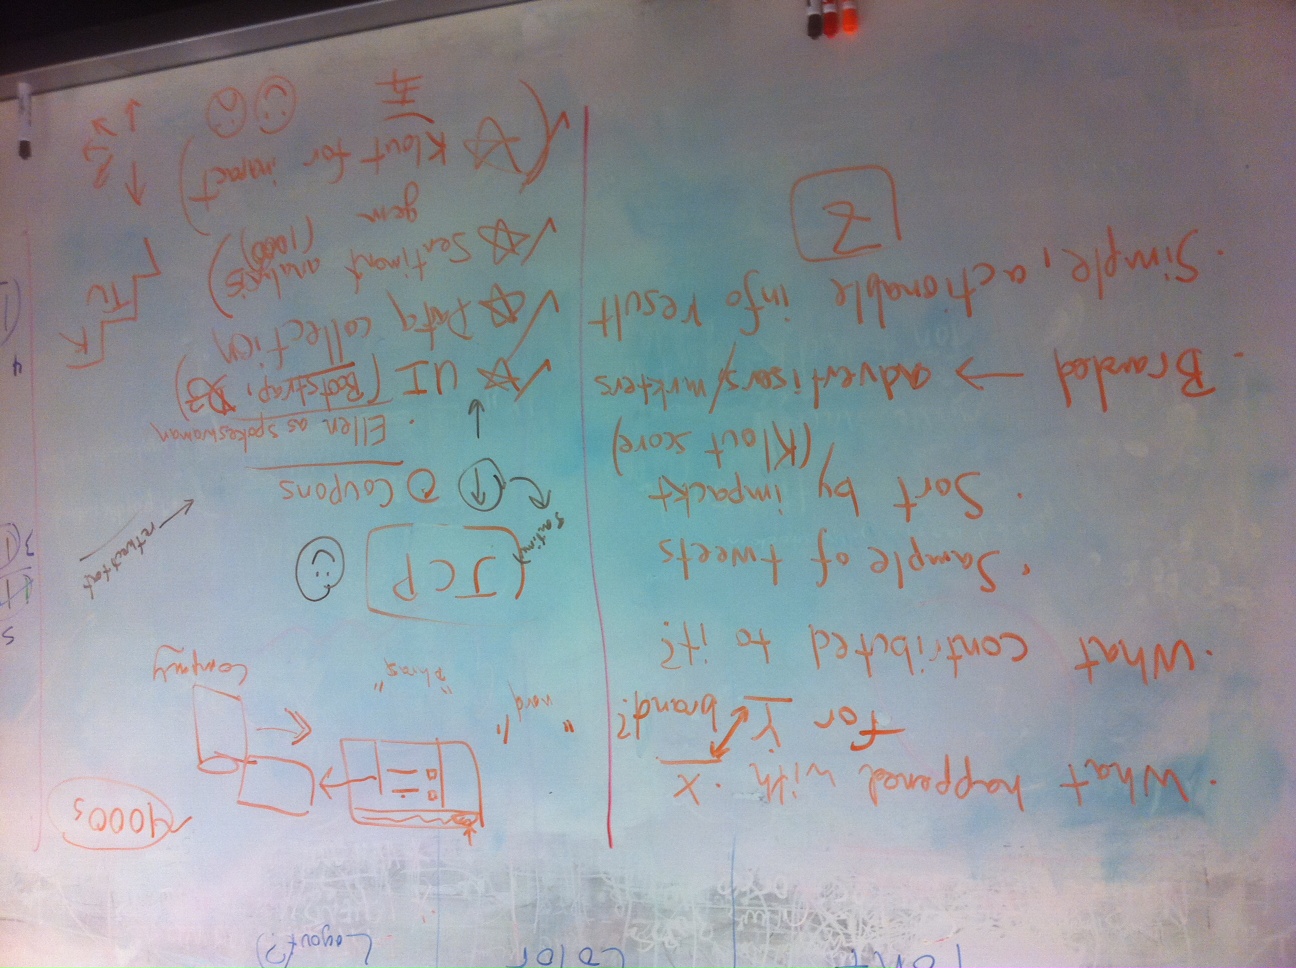 Font
Color
Layout?)
· What happened with · X
for Y brand?
· What contributed to it?
· Sample of tweets
· Sort by impackt
(Klout score)
· Branded → advertisers/mrkters
· Simple, actionable info result
Z
~1000s
"word"
"phras"
Company
JCP
retweet text
Coupons
· Ellen as spokeswoman
✓☆ UI (Bootstrap,
✓☆ Data collection
✓☆ Sentiment analysis)
gem (1000)
✓(☆ Klout for impact)
K
TU
3
4